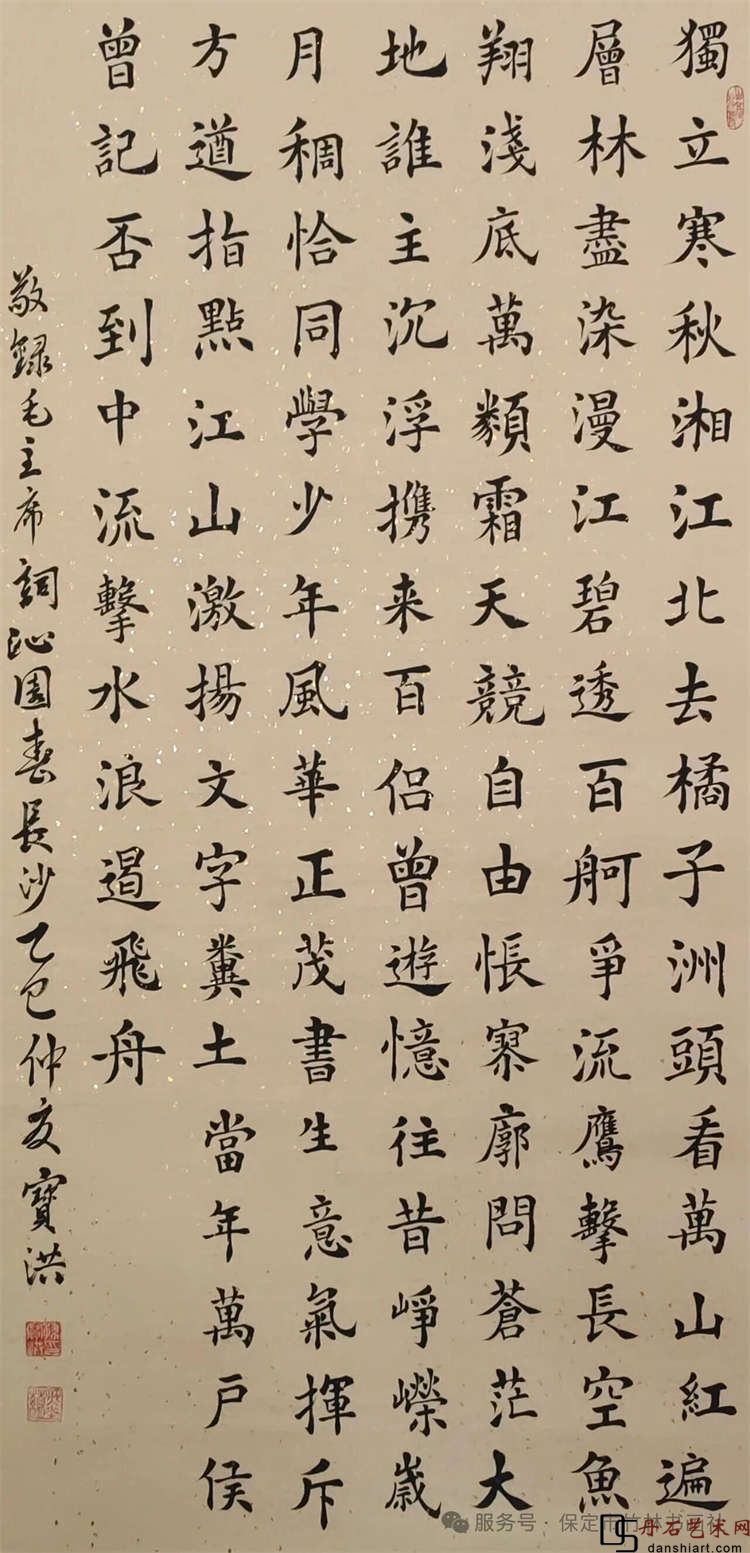 獨立寒秋湘江北去橘子洲頭看萬山紅遍
層林盡染漫江碧透百舸爭流鷹擊長空魚
翔淺底萬類霜天競自由悵寥廓問蒼茫大
地誰主沉浮携来百侣曾遊憶往昔崢嶸歲
月稠恰同學少年風華正茂書生意氣揮斥
方遒指點江山激揚文字糞土當年萬户侯
曾記否到中流擊水浪遏飛舟
敬録毛主席詞沁園春長沙乙巳仲夏寶洪
服务号·保定市竹林书画社
丹石艺术网
danshiart.com